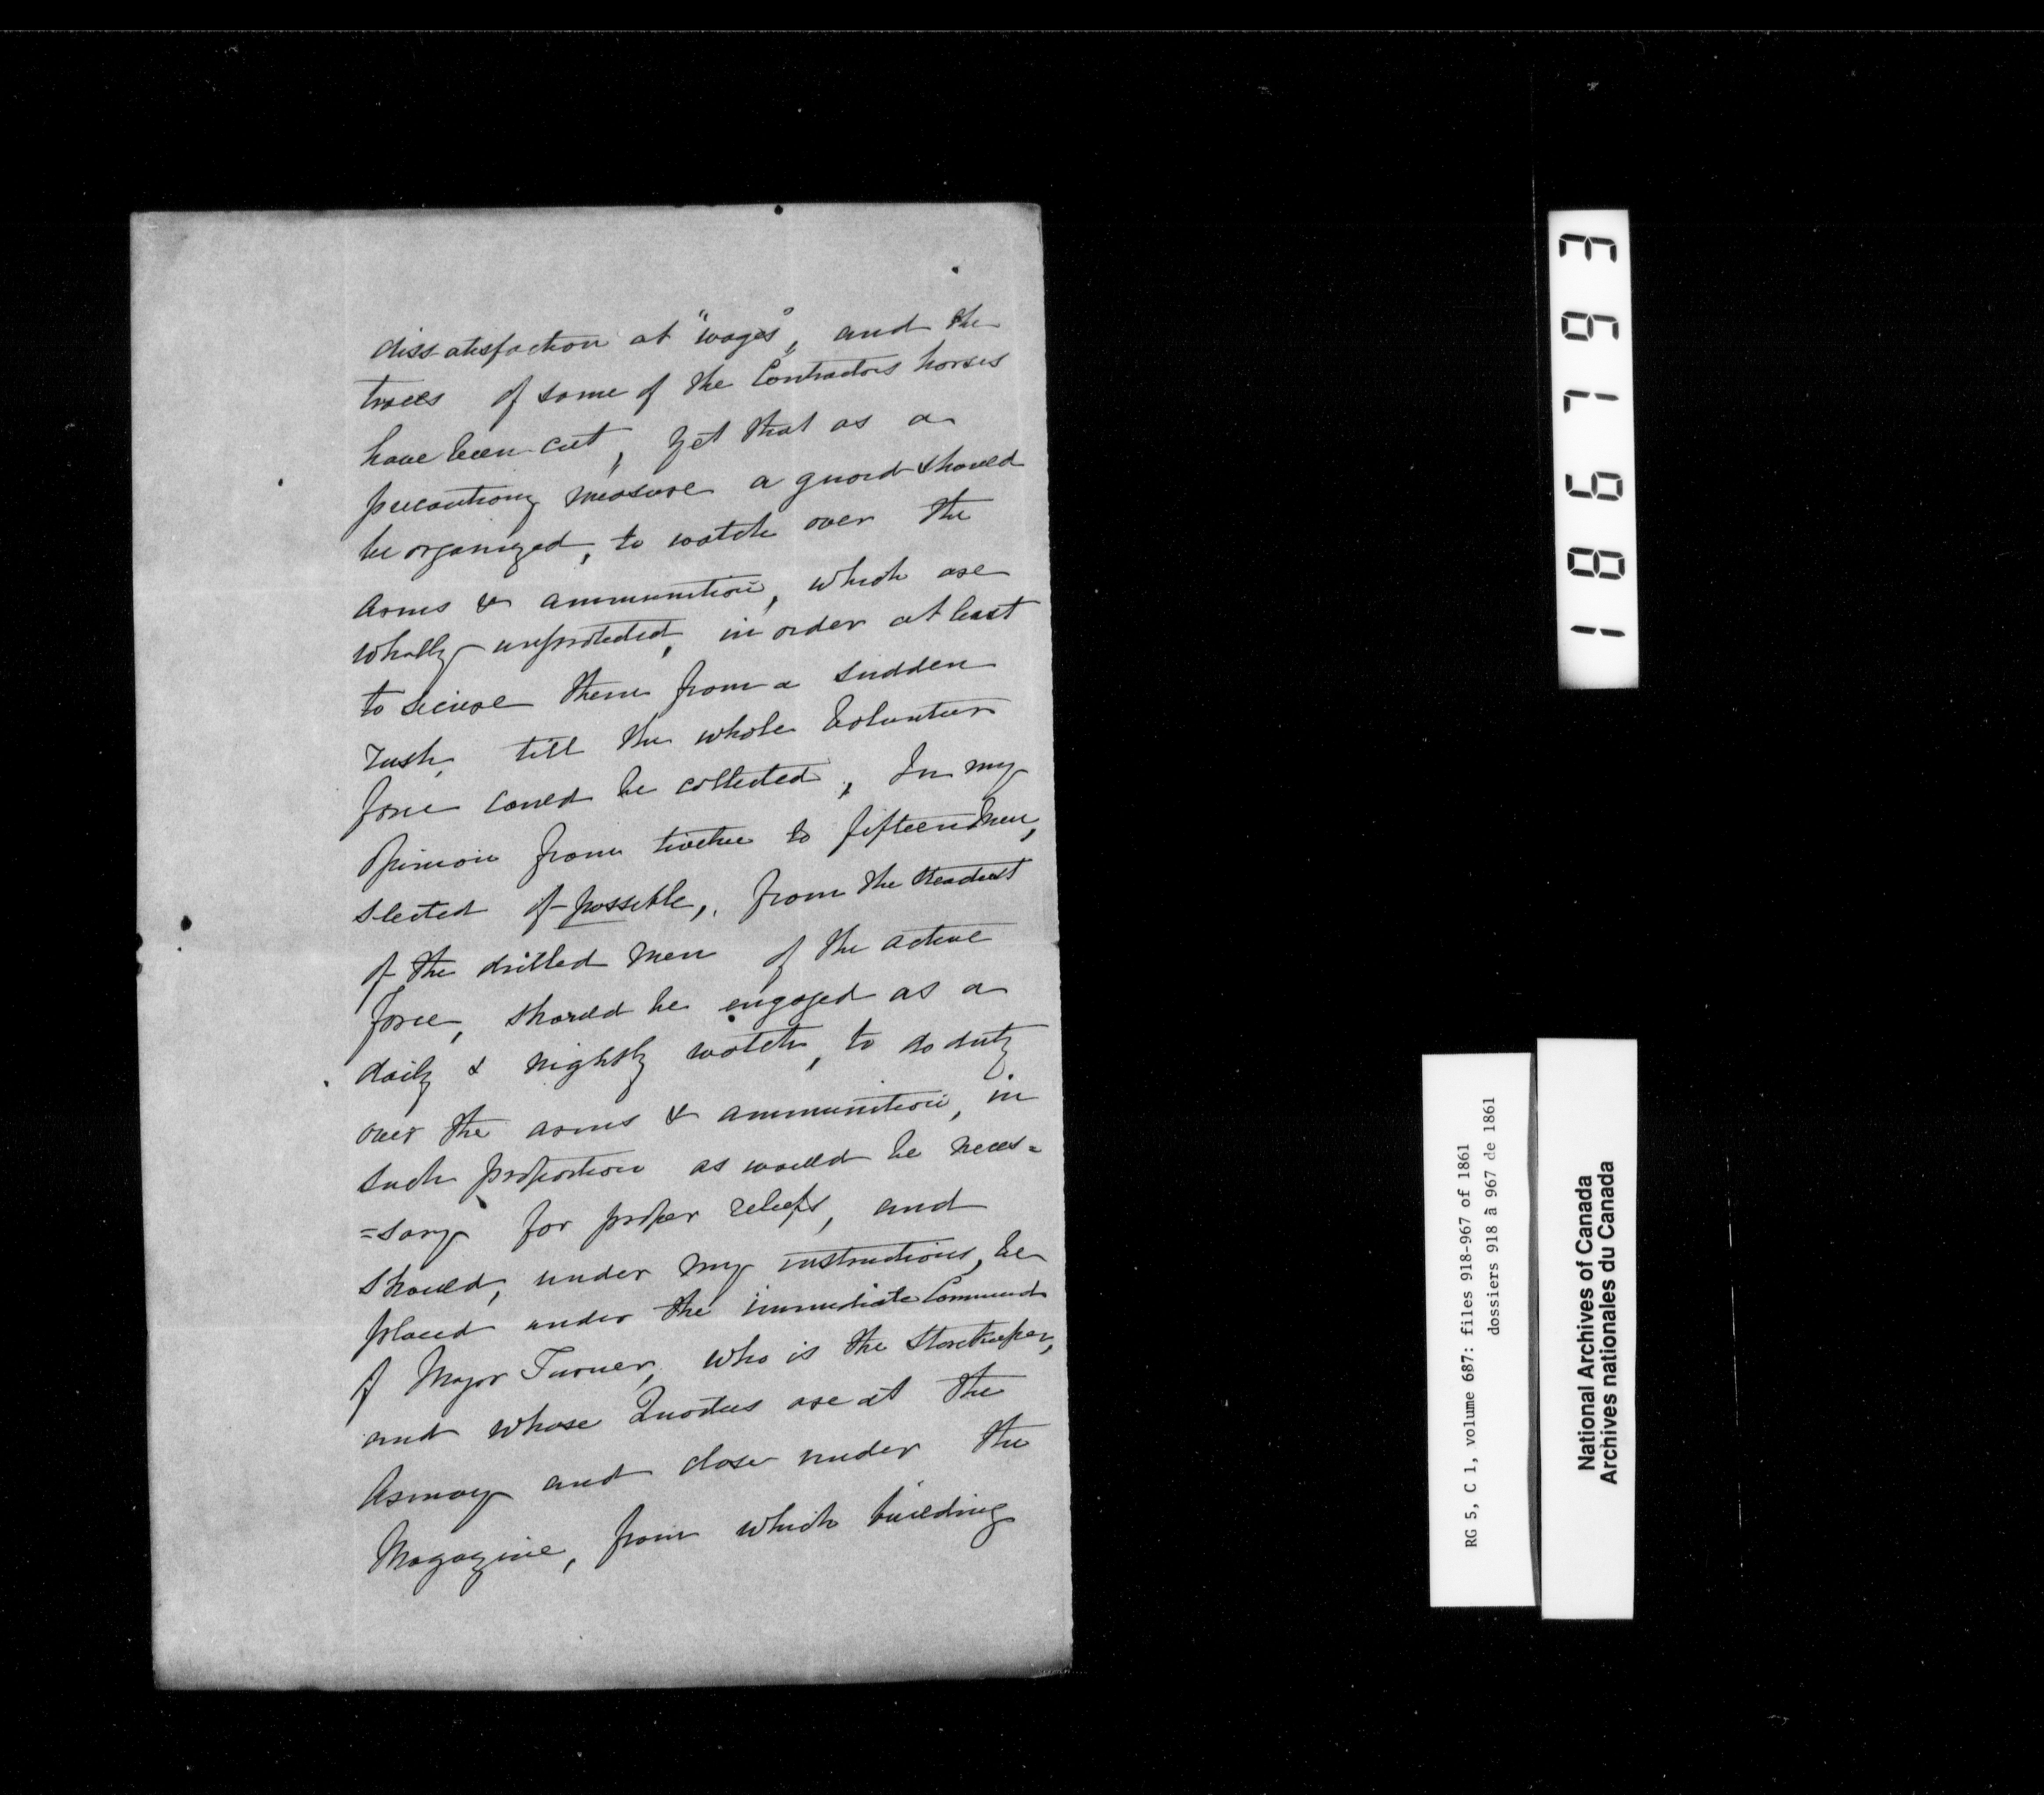 dissatisfaction at "wages", and the
traces of some of the Contractors horses
have been cut, yet that as a
precautiony measure a guard should
be organized, to watch over the
arms & ammunition, which are
wholly unprotected, in order at least
to secure them from a sudden
rush, till the whole Volunteer
force could be collected, In my
Opinion from twelve to fifteen Men,
slected if possible, from the steadiest
of the drilled men of the active
force, should be engaged as a
daily & nightly watch, to do duty
over the arms & ammunition, in
such proportion as would be neces=
=sary for proper reliefs, and
should, under my instructions, be
placed under the immediate Command
of Major Turner, who is the Storekeeper,
and whose Quarters are at the
Armory and close under the
Magazine, from which building
186793
RG 5, C 1, volume 687: files 918-967 of 1861
dossiers 918 à 967 de 1861
National Archives of Canada
Archives nationales du Canada